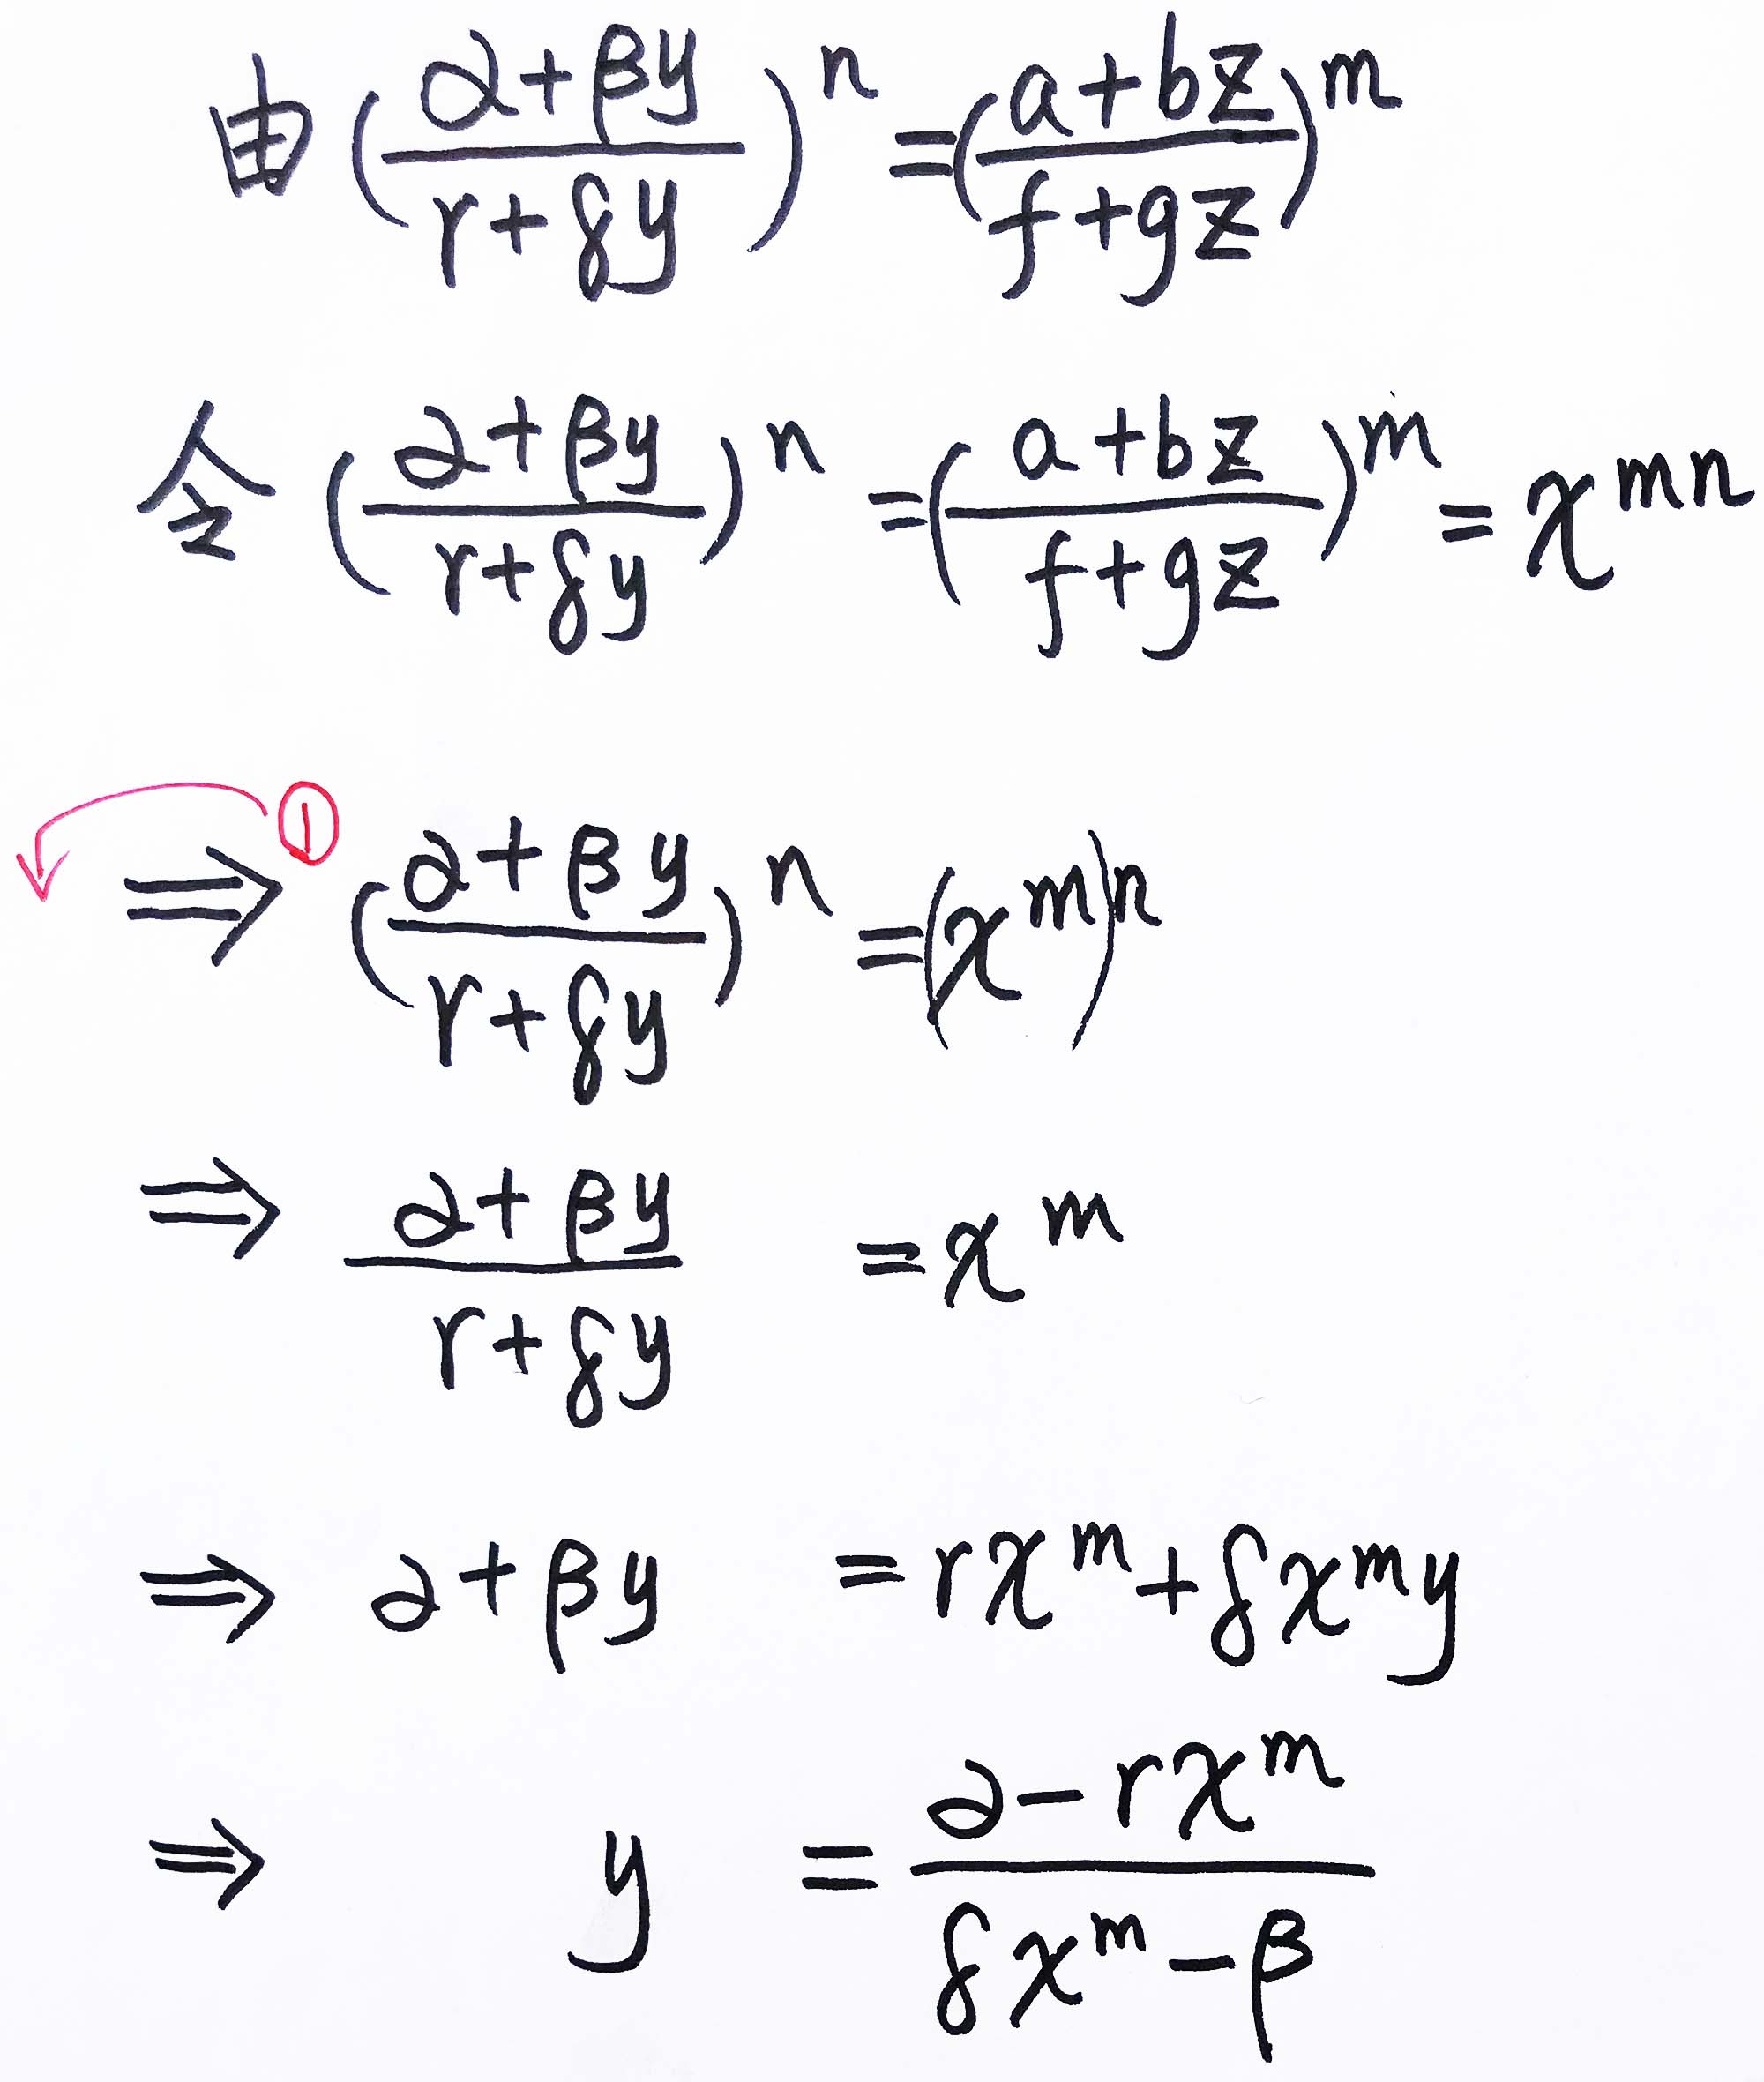 由 $\left(\frac{\alpha+\beta y}{\gamma+\delta y}\right)^n = \left(\frac{a+bz}{f+gz}\right)^m$
令 $\left(\frac{\alpha+\beta y}{\gamma+\delta y}\right)^n = \left(\frac{a+bz}{f+gz}\right)^m = x^{mn}$
① $\Rightarrow \left(\frac{\alpha+\beta y}{\gamma+\delta y}\right)^n = (x^m)^n$
$\Rightarrow \frac{\alpha+\beta y}{\gamma+\delta y} = x^m$
$\Rightarrow \alpha+\beta y = \gamma x^m + \delta x^m y$
$\Rightarrow y = \frac{\alpha-\gamma x^m}{\delta x^m-\beta}$